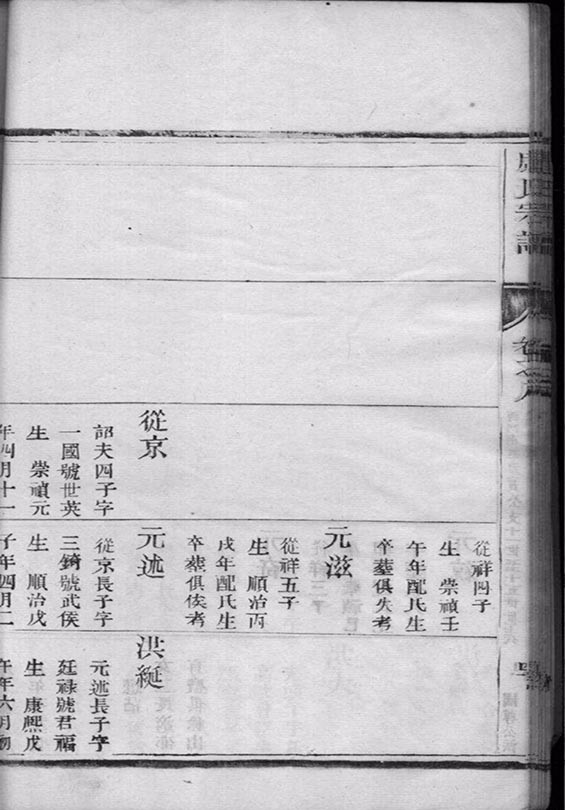 氏宗譜
從祥四子
生 崇禎壬
午年配氏生
卒葬俱失考
元滋
從祥五子
生 順治丙
戌年配氏生
卒葬俱俟考
從京
詔夫四子字
一國號世英
生 崇禎元
年四月十一
元述
從京長子字
三錡號武侯
生 順治戊
子年四月二
洪綖
元述長子字
廷祿號君福
生 康熙戊
午年六月初